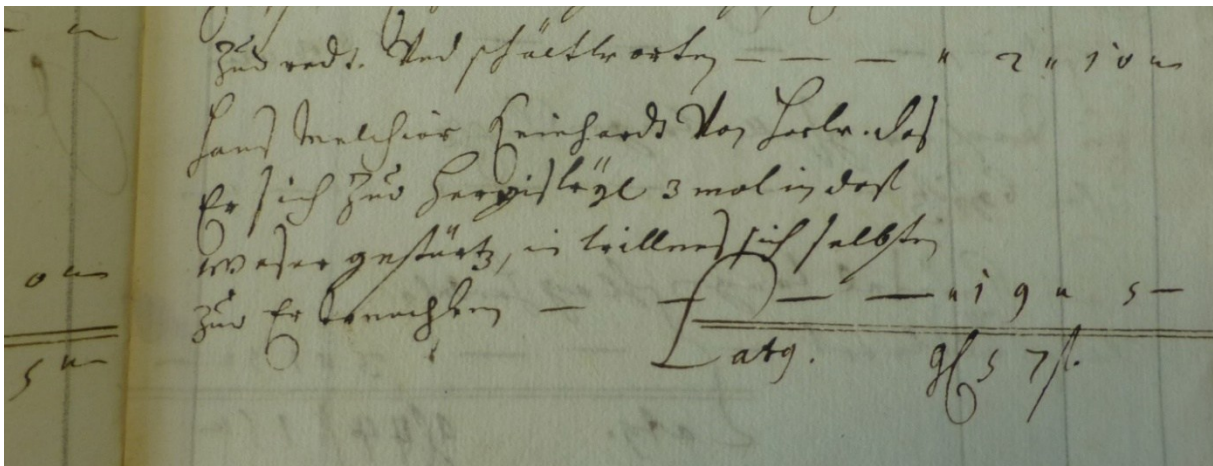 Zuo redt. Und schältworten — — — " 2 " 10 "
Hans Melchior Leinhardt Von Horw. das
Er sich Zuo Hergiswyl 3 mol in dass
Waser gestürtz, in willens sich selbsten
Zuo Er trenckhen — — — — " 19 " 5 —
Latg. gl 57 s.
0 "
5 "